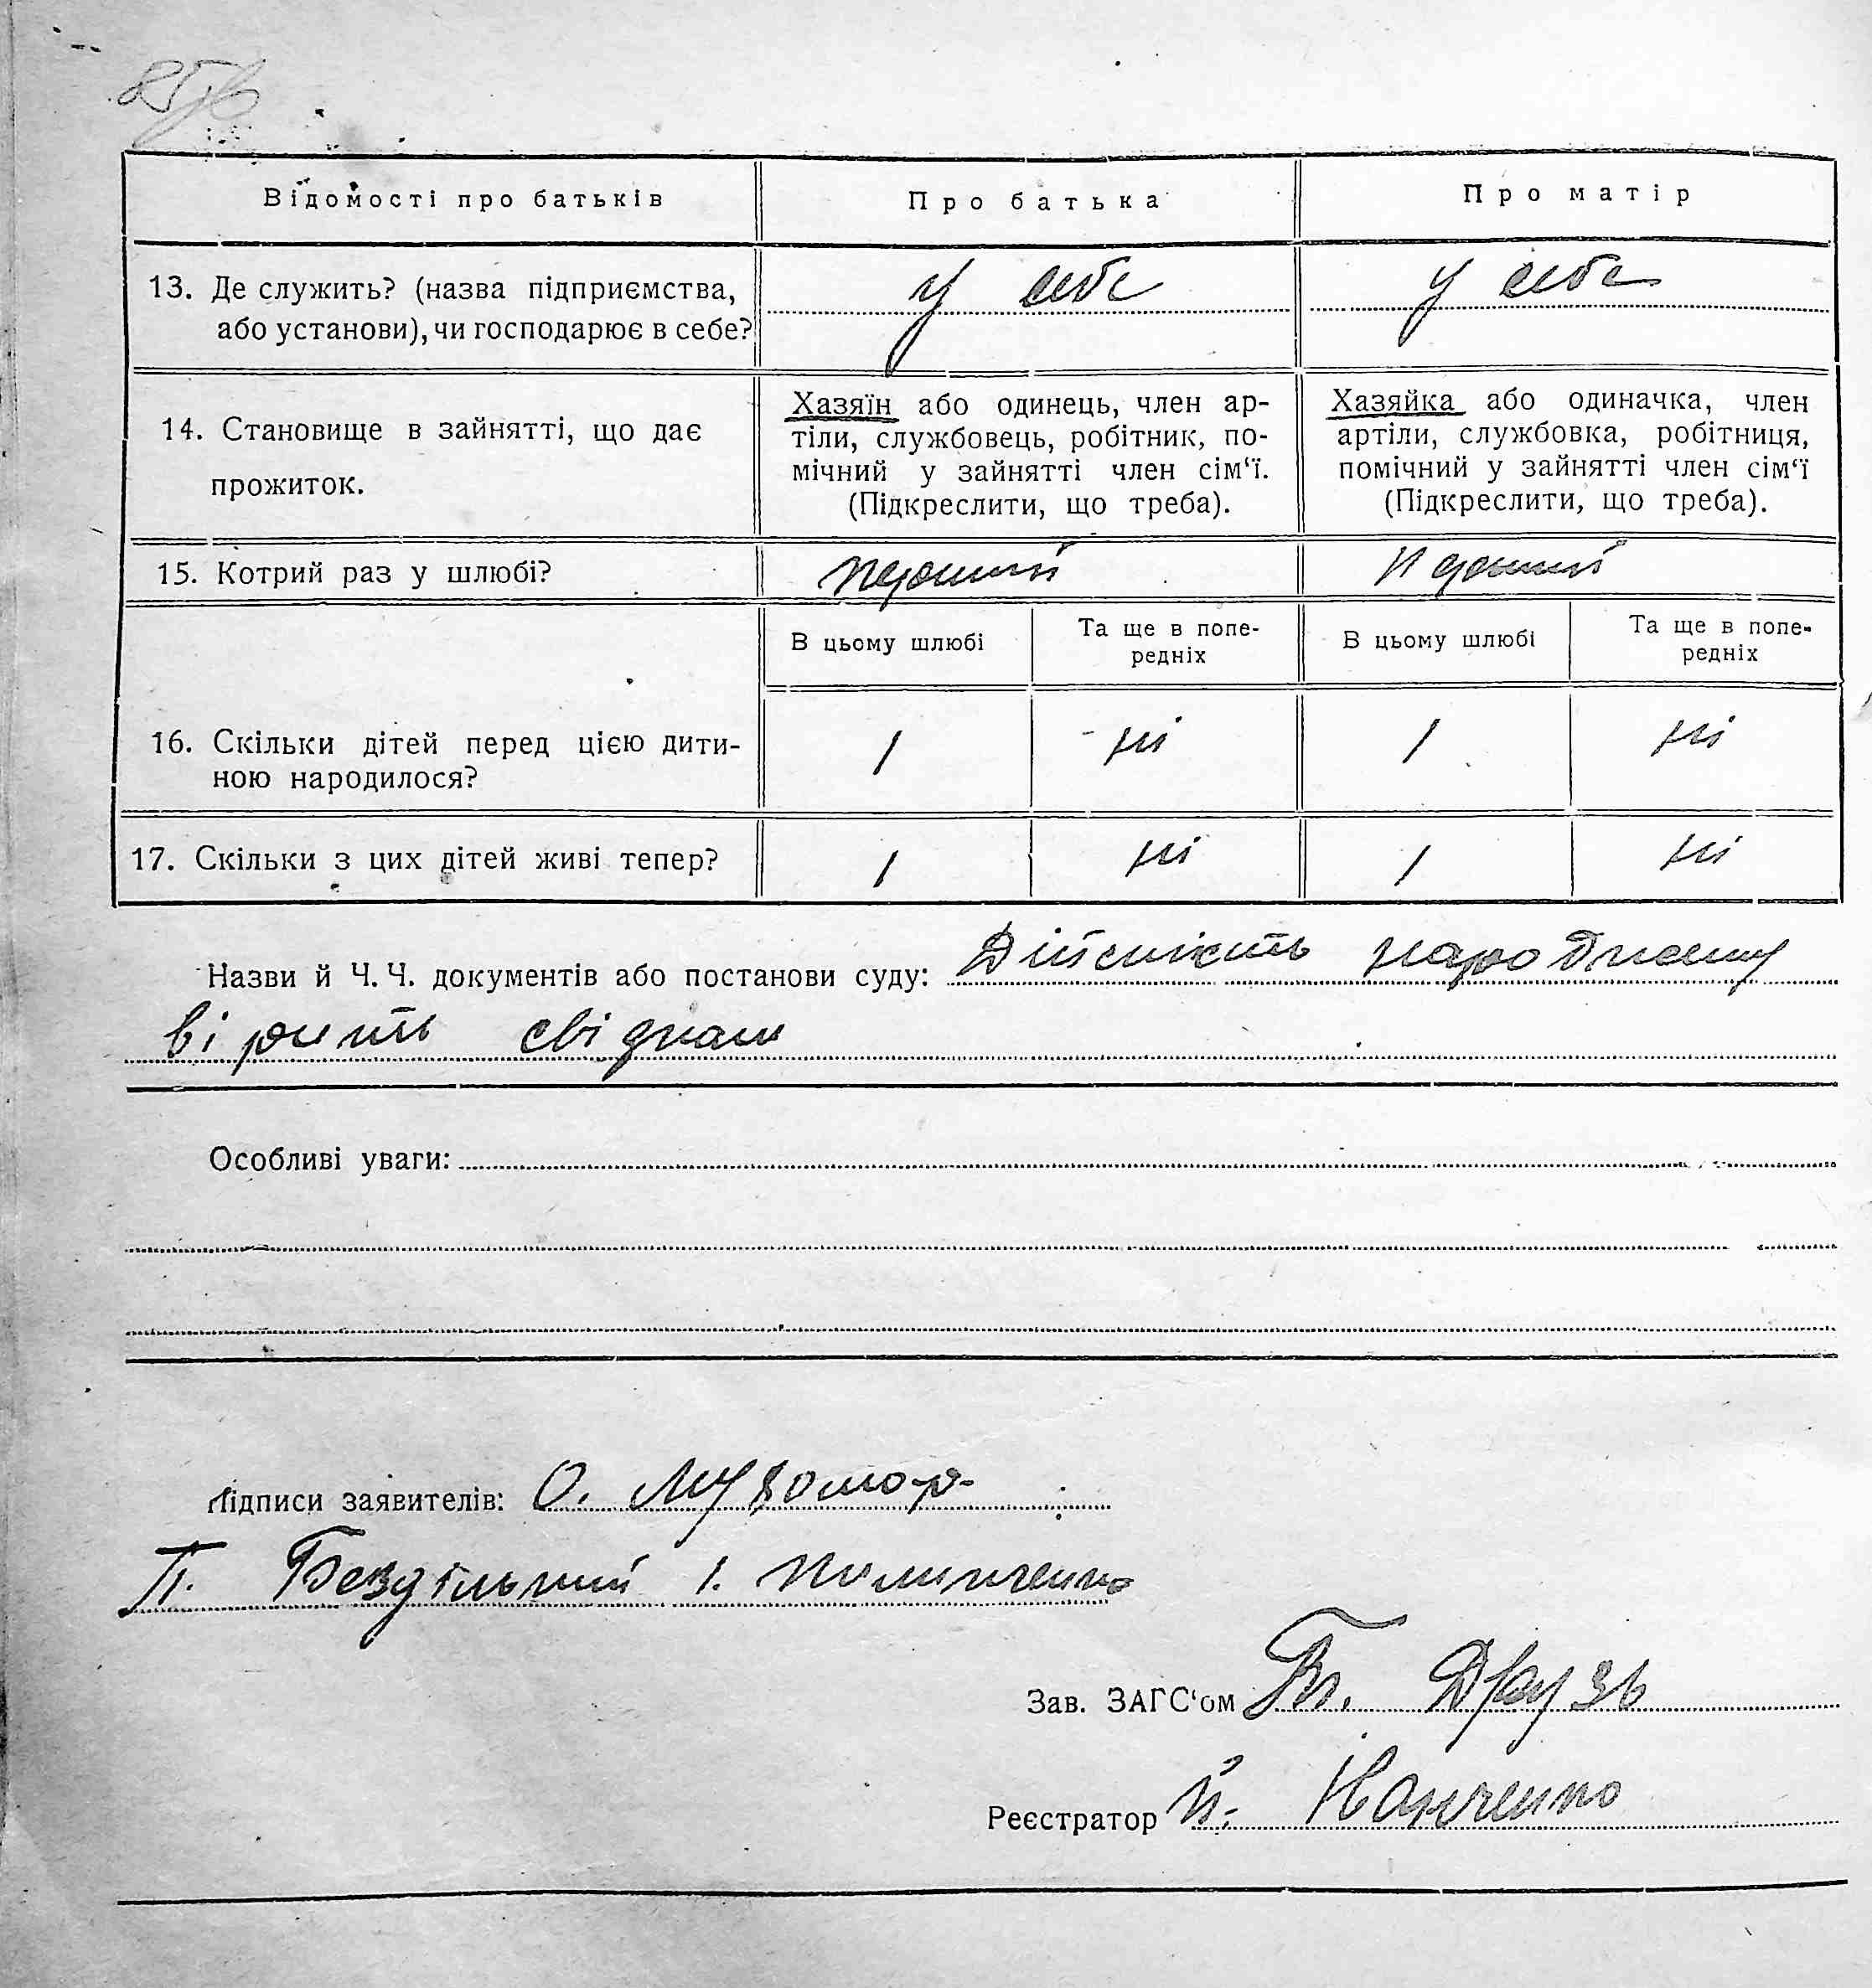 Відомості про батьків
Про батька
Про матір
13. Де служить? (назва підприємства, або установи), чи господарює в себе?
у себе
у себе
14. Становище в зайнятті, що дає прожиток.
Хазяїн або одинець, член ар-
тіли, службовець, робітник, по-
мічний у зайнятті член сім‘ї.
(Підкреслити, що треба).
Хазяйка або одиначка, член
артіли, службовка, робітниця,
помічний у зайнятті член сім‘ї
(Підкреслити, що треба).
15. Котрий раз у шлюбі?
перший
перший
В цьому шлюбі
Та ще в попе-
редніх
В цьому шлюбі
Та ще в попе-
редніх
16. Скільки дітей перед цією дити-
ною народилося?
1
ні
1
ні
17. Скільки з цих дітей живі тепер?
1
ні
1
ні
Назви й Ч. Ч. документів або постанови суду: Дійсність народження
вірить свідки
Особливі уваги:
Підписи заявителів: О.
П. Бездільний І.
Зав. ЗАГС‘ом Вл. Друзь
Реєстратор